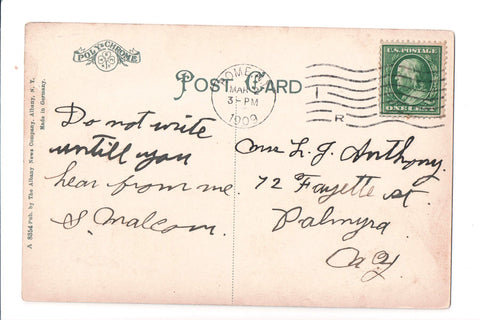 POLYCHROME
POST CARD
U.S. POSTAGE
ONE CENT
ROME
MAR
3-PM
1909
R
A 8354 Pub. by The Albany News Company, Albany, N. Y.
Made in Germany.
Do not write
untill you
hear from me.
S. Malcom.
L. J. Anthony.
72 Fayette st.
Palmyra